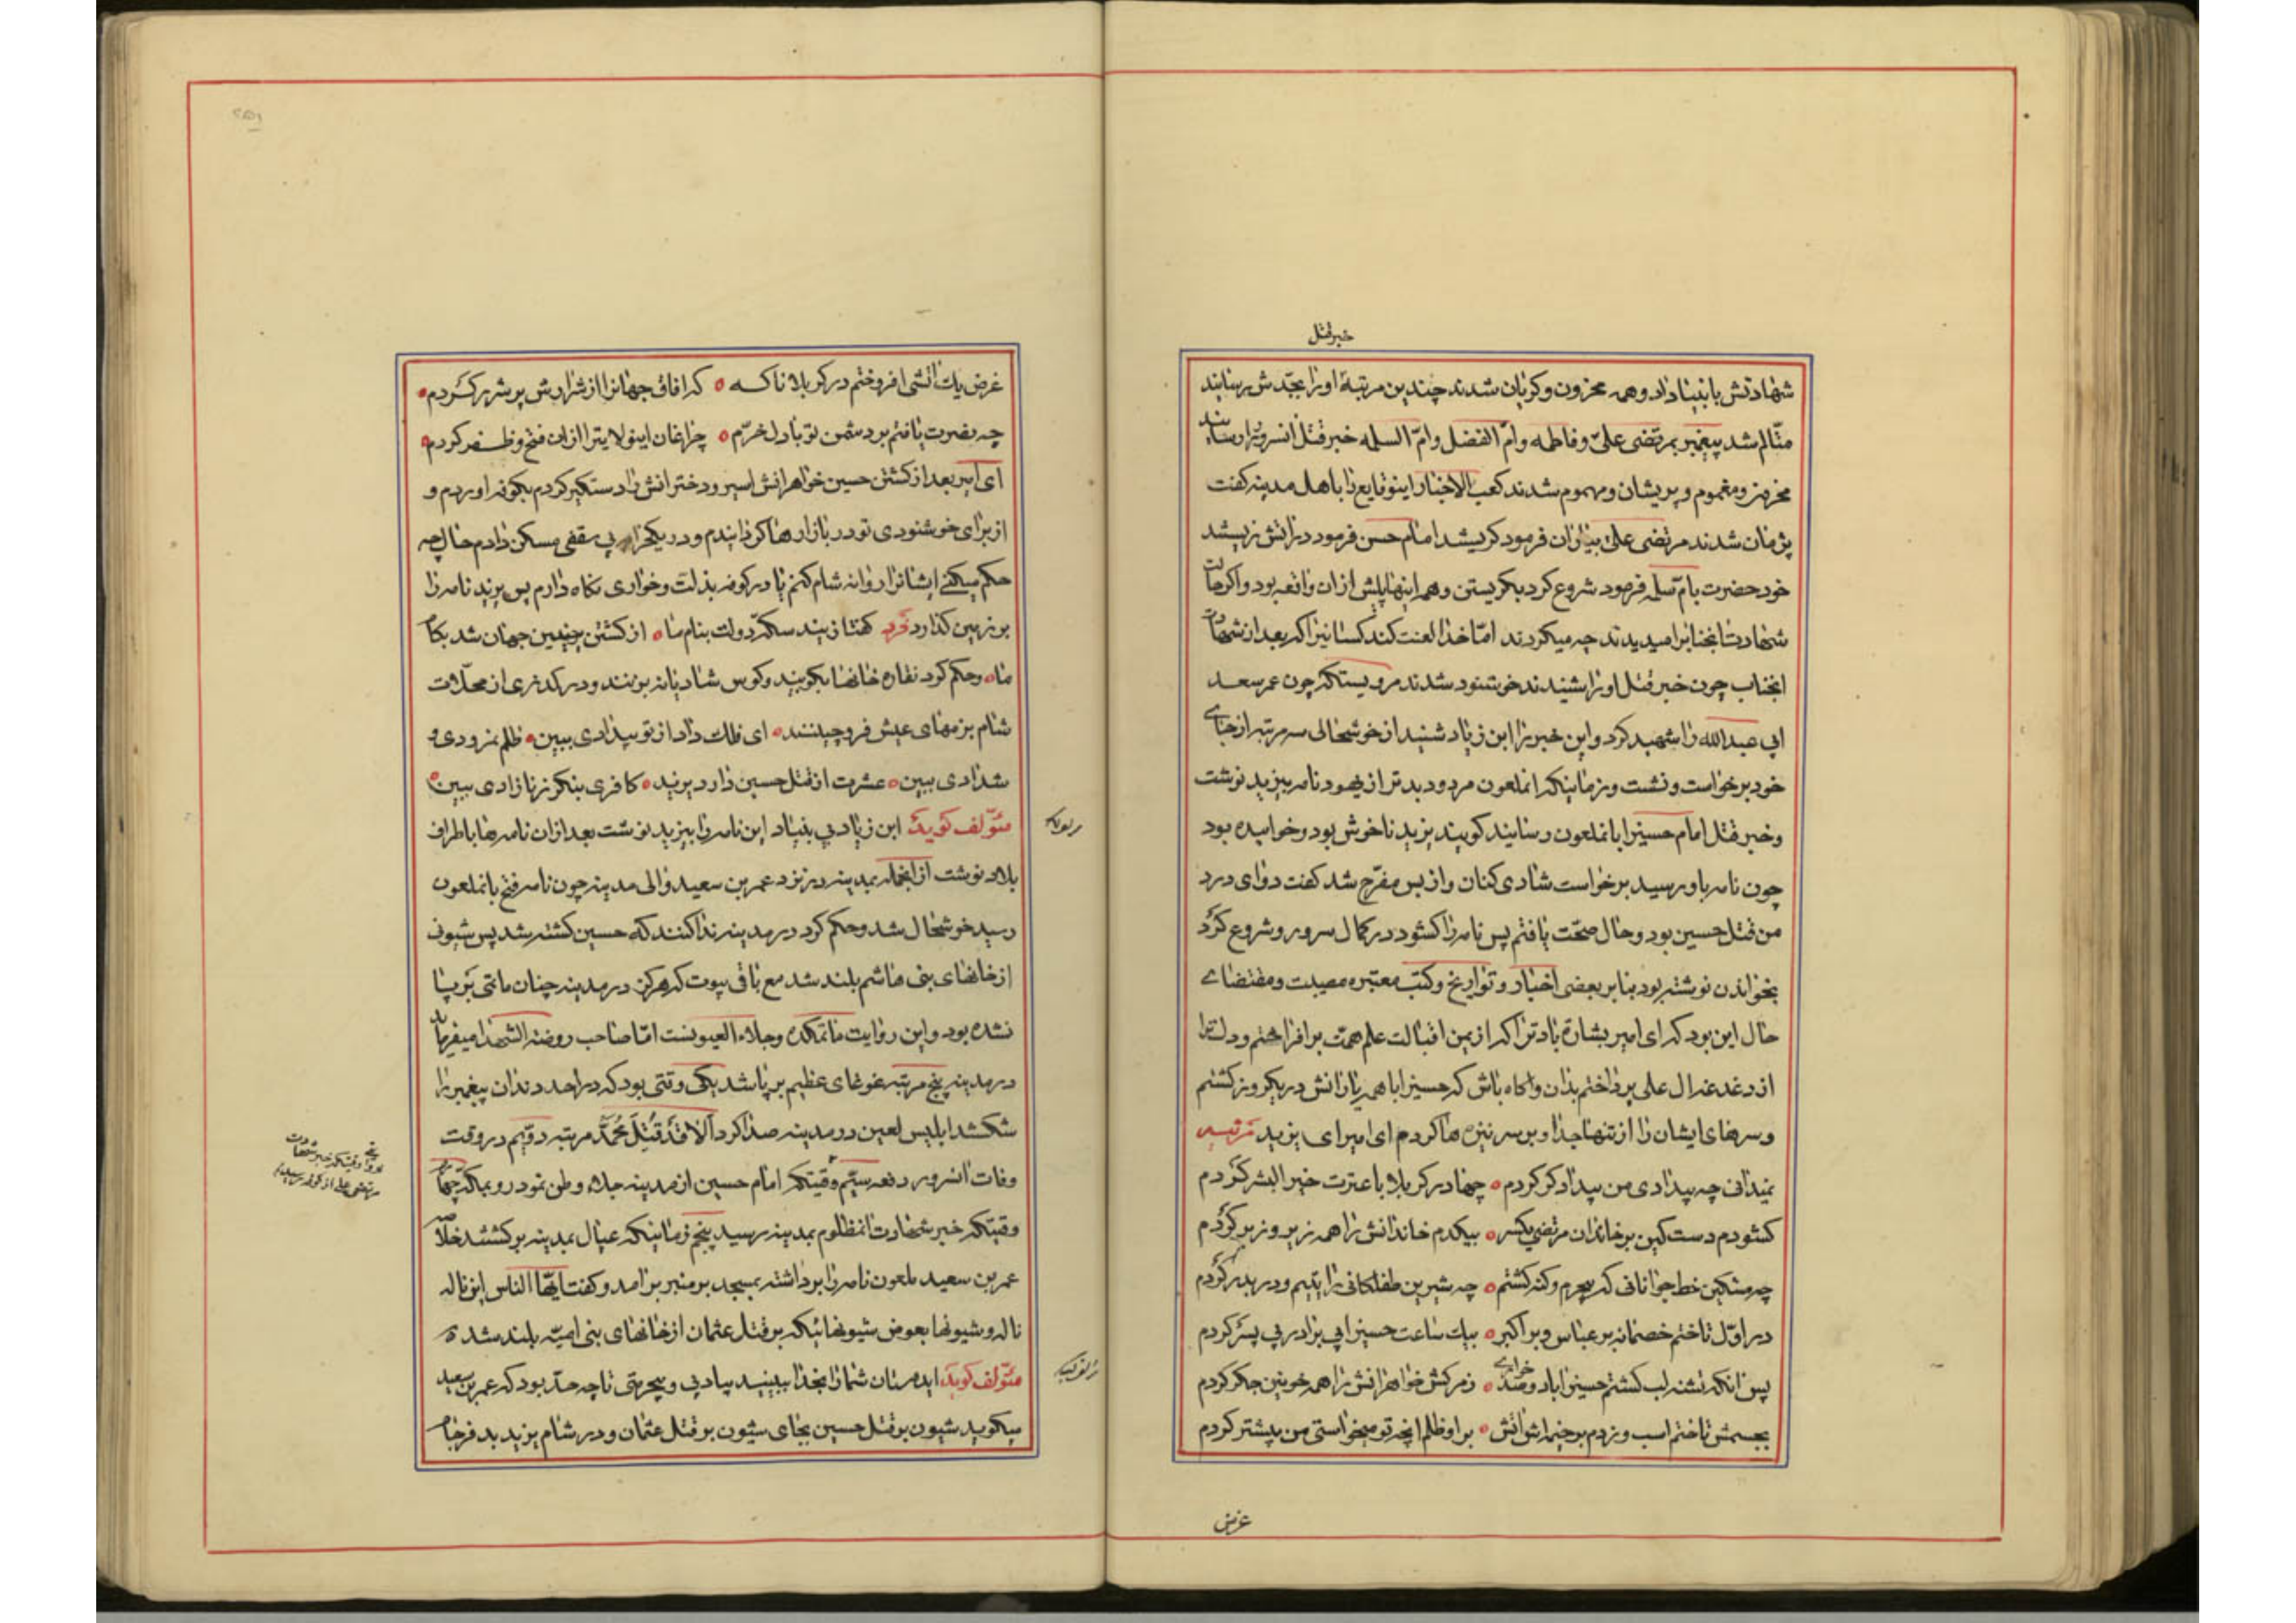 خبر قتل
شهادتش بانبیا داد و همه محزون و کریان شدند چندین مرتبۀ او را بجدّش رسانیدند
متّالم شد پیغمبر بمرتضی علیّ و فاطمه و امّ الفضل و امّ السلمه خبر قتل انسرور را رسانید
محزون و مغموم و پریشان و مهموم شدند کعب الاخبار اینوقایع را باهل مدینه کفت
پژمان شدند مرتضی علی بیاران فرمود کریستند امام حسن فرمود
خود حضرت بامّ سلمه فرمود شروع کرد بکریستن و همه اینها پیش از ان واقعه بود و اکر حالت
شهادت انجنابرا میدیدند چه میکردند امّا خدا لعنت کند کسانیرا که بعد از شهادت
انجناب چون خبر قتل او را شنیدند خوشنود شدند مرویستکه چون عمر سعد
ابی عبدالله را شهید کرد و این خبر را ابن زیاد شنید از خوشحالی سه مرتبه از جای
خود برخواست و نشست و زمانیکه انملعون مردود بدتر از یهود نامه بیزید نوشت
و خبر قتل امام حسینرا بانملعون رسانید کویند یزید ناخوش بود و خوابیده بود
چون نامه باو رسید برخواست شادی کنان و از بس مفرّح شد کفت دوای درد
من قتل حسین بود و حال صحّت یافتم پس نامه را کشود در کمال سرور و شروع کرد
بخواندن نوشته بود بنابر بعضی اخبار و تواریخ و کتب معتبره مصیبت و مقتضای
حال این بود که ای امیر بشارة باد ترا که از یمن اقبالت علم همّت برافراختم و دلت را
از دغدغه ال علی پرداختم بدان و اکاه باش که حسینرا با همه یارانش در یکروز کشتم
و سرهای ایشان را از تنها جدا و بر سر نیزه ها کردم ای امیر ای یزید مرثیه
نمیدانی چه بیدادی من بیدادکر کردم ۰ چها در کربلا با عترت خیر البشر کردم
کشودم دست کین بر خاندان مرتضی یکسر ۰ بیکدم خاندانش را همه زیر و زبر کردم
چه مشکین خط جوانانی که بیجرم و کنه کشتم ۰ چه شیرین طفلکانی را یتیم و دربدر کردم
در اوّل تاختم خصمانه بر عباس و بر اکبر ۰ بیک ساعت حسینرا بی برادر بی پسر کردم
پس انکه تشنه لب کشتم حسینرا با دو صد خواری ۰ زمرکش خواهرانش را همه خونین جکر کردم
بجسمش تاختم اسب و زدم بر خیمه اش اتش ۰ بر او ظلم انچه تو میخواستی من بیشتر کردم
غرض
غرض یک اتشی افروختم در کربلا ناکه ۰ که افاق جهانرا از شرارش پر شرر کردم ۰
چه نصرت یافتم بر دشمن تو با دل خرّم ۰ چراغان اینولایترا از ان فتح و ظفر کردم ۰
ای امیر بعد از کشتن حسین خواهرانش اسیر و دخترانش را دستکیر کردم بکوفه اوردم و
از برای خوشنودی تو در بازارها کردانیدم و در یک خرابه بی سقفی مسکن دادم حال چه
حکم میکنی ایشانرا روانه شام کنم یا در کوفه بذلّت و خواری نکاه دارم پس یزید نامه را
بر زمین کذارد فرد کفتا زنید سکّه دولت بنام ما ۰ از کشتن حسین جهان شد بکام
ما ۰ و حکم کرد نقاره خانها بکوبند و کوس شادیانه بزنند و در هر کذری از محلّات
شام بزمهای عیش فرو چیدند ۰ ای فلک داد از تو بیدادی ببین ۰ ظلم نمرودی و
شدادی ببین ۰ عشرت از قتل حسین دارد یزید ۰ کافری بنکر زنازادی ببین ۰
مئولف کوید ابن زیاد بی بنیاد این نامه را بیزید نوشت بعد از ان نامه ها باطراف
بلاد نوشت از انجمله بمدینه در نزد عمر بن سعید والی مدینه چون نامه فتح بانملعون
رسید خوشحال شد و حکم کرد در مدینه ندا کنند که حسین کشته شد پس شیون
از خانهای بنی هاشم بلند شد مع باقی بیوت که هرکز در مدینه چنان ماتمی برپا
نشده بود و این روایت ماتمکده و جلاء العیونست امّا صاحب روضة الشهدا میفرماید
در مدینه پنج مرتبه غوغای عظیم برپا شد یکی وقتی بود که در احد دندان پیغمبر را
شکستند ابلیس لعین در مدینه صدا کرد اَلا قَد قُتِلَ مُحَمَّد مرتبه دوّیم در وقت
وفات انسرور دفعه سیّم وقتیکه امام حسین از مدینه جلاء وطن نمود رو بمکه چهارم
وقتیکه خبر شهادت انمظلوم بمدینه رسید پنجم زمانیکه عیال بمدینه برکشتند خلاصه
عمر بن سعید ملعون نامه را برداشته بمسجد بر منبر برامد و کفت ایّها الناس این ناله
ناله و شیونها بعوض شیونهائیکه بر قتل عثمان از خانهای بنی امیّه بلند شده
مئولف کوید ایدوستان شما را بخدا ببینید بیادبی و بیحرمتی تا چه حدّ بود که عمر بن سعید
میکوید شیون بر قتل حسین بجای شیون بر قتل عثمان و در شام یزید بد فرجام